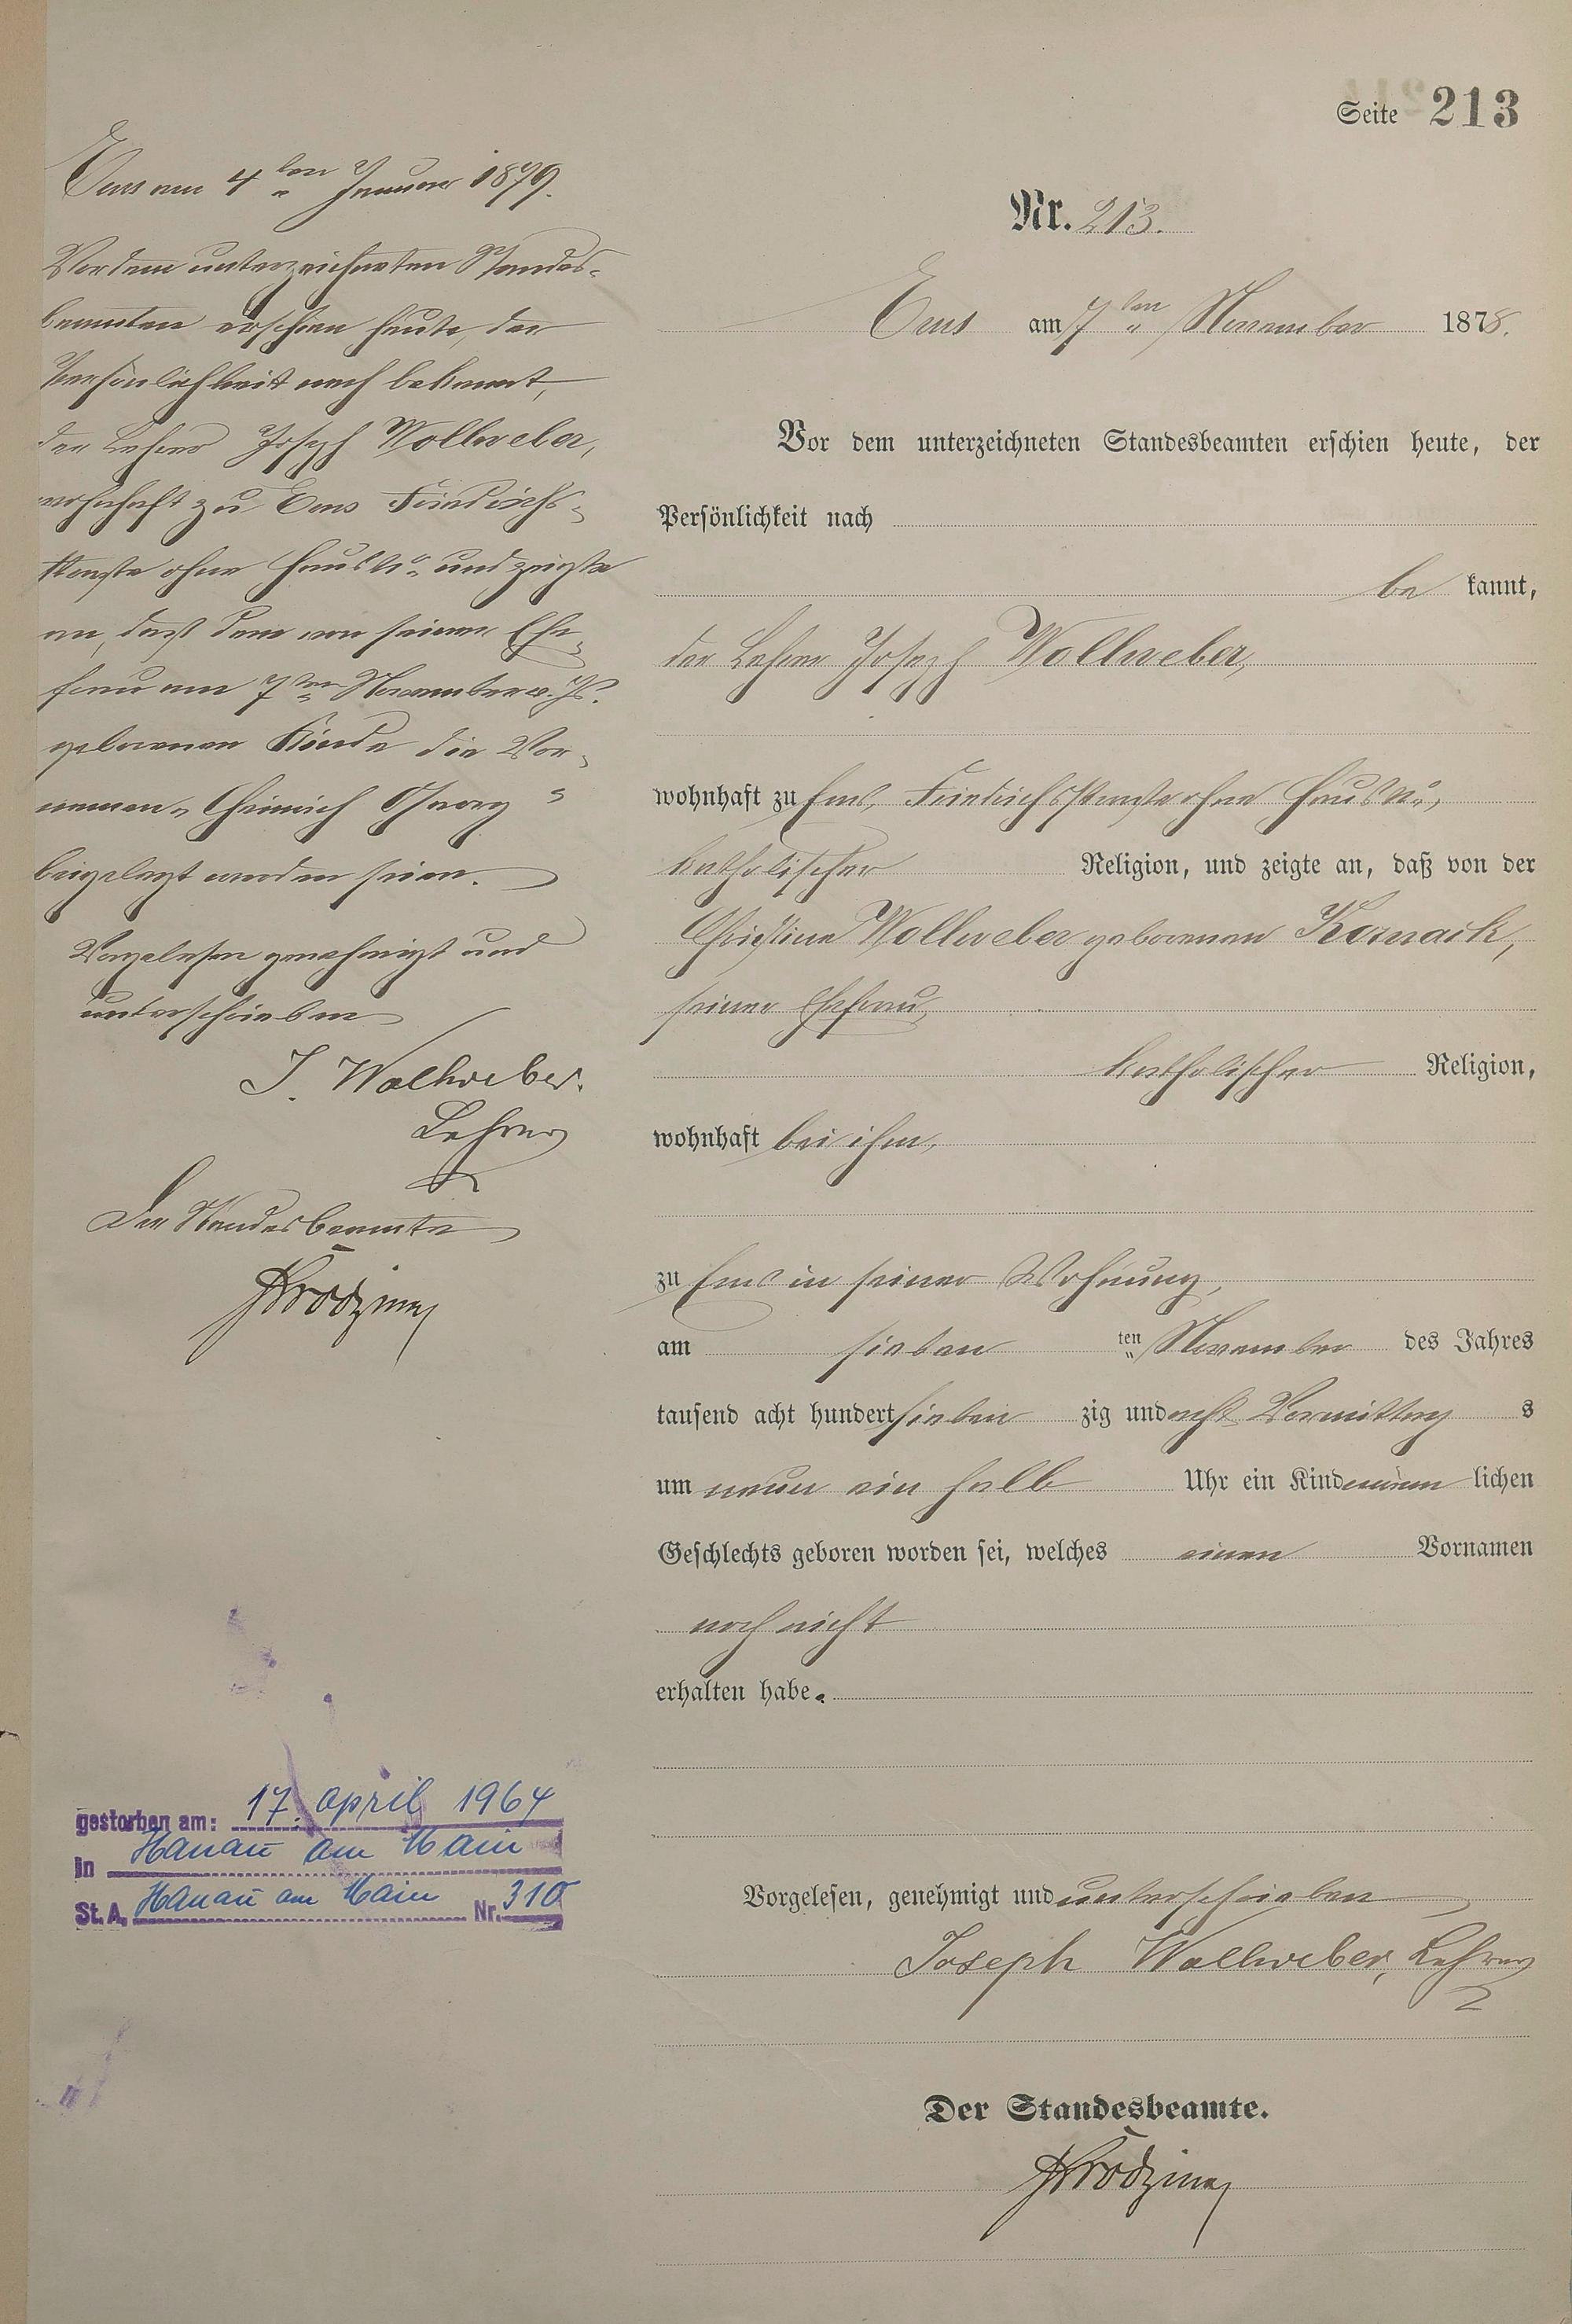 Seite 213
Nr. 213.
Ems am 7ten November 1878.
Vor dem unterzeichneten Standesbeamten erschien heute, der
Persönlichkeit nach
be kannt,
der Lehrer Joseph Wollweber,
wohnhaft zu Ems, Friedrichsstraße ohne Haus No,
katholischer Religion, und zeigte an, daß von der
Christine Wollweber geborenen
seiner Ehefrau,
katholischer Religion,
wohnhaft bei ihm,
zu Ems in seiner Wohnung,
am sieben ten November des Jahres
tausend acht hundert sieben zig und acht Vormittag s
um neun ein halb Uhr ein Kind männ lichen
Geschlechts geboren worden sei, welches einen Vornamen
noch nicht
erhalten habe.
Vorgelesen, genehmigt und unterschrieben
Joseph Wollweber, Lehrer
Der Standesbeamte.
Ems am 4ten Januar 1879.
Vor dem unterzeichneten Standes-
beamten erschien heute, der
Persönlichkeit nach bekannt,
der Lehrer Joseph Wollweber,
wohnhaft zu Ems Friedrichs-
straße ohne Haus No und zeigte
an, daß dem von seiner Ehe-
frau am 7ten November v. Js.
geborenen Kinde die Vor-
namen "Heinrich Georg"
beigelegt worden seien.
Vorgelesen genehmigt und
unterschrieben
J. Wollweber.
Lehrer
Der Standesbeamte
gestorben am: 17. April 1964
in Hanau am Main
St. A. Hanau am Main Nr. 310